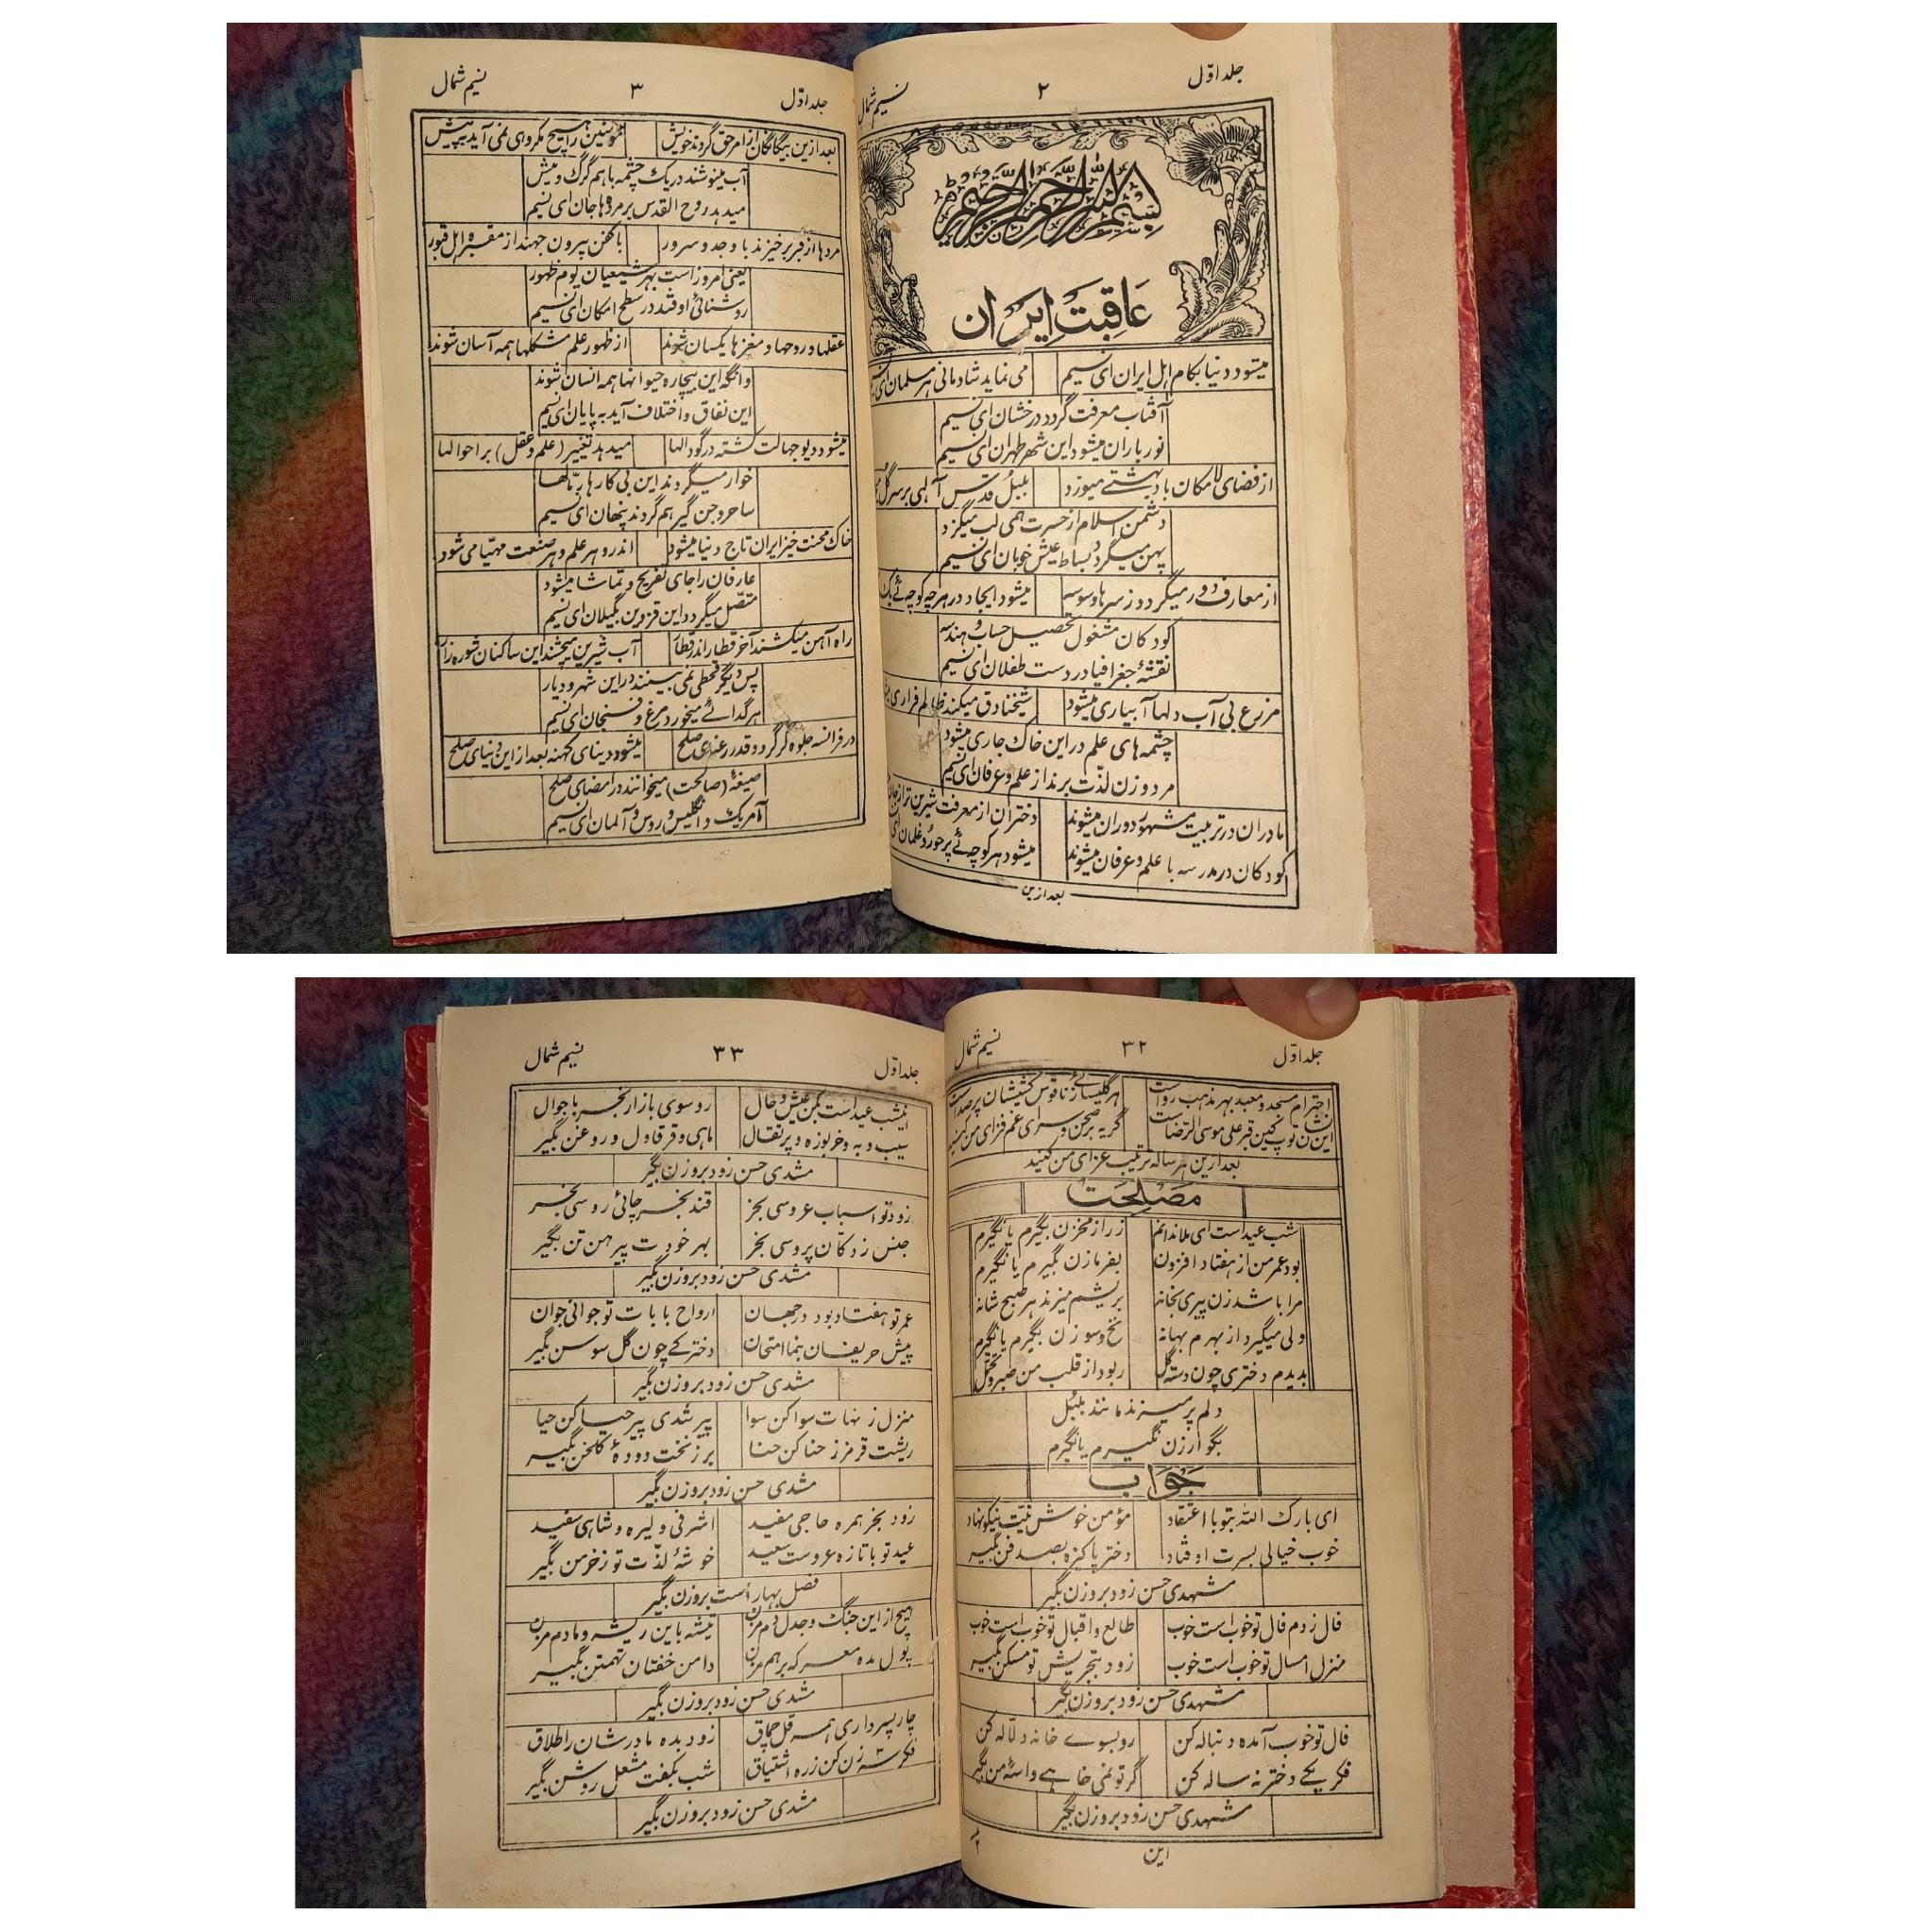 جلد اوّل ۲ نسیم شمال
بسم الله الرحمن الرحیم
عاقبت ایران
میشود دنیا بکام اهل ایران ای نسیم می نماید شادمانی هر مسلمان ای
آفتاب معرفت گردد درخشان ای نسیم
نور باران میشود این شهر طهران ای نسیم
از فضای لامکان باد بهشتی میوزد بلبل قدس آلهی بر سر گل
دشمن اسلام از حسرت همی لب میگزد
پهن میگردد بساط عیش خوبان ای نسیم
از معارف دور میگردد ز سرها وسوسه میشود ایجاد در هر چه کوچهٔ یک
کودکان مشغول تحصیل حساب و هندسه
نقشهٔ جغرافیا در دست طفلان ای نسیم
مزرع بی آب دلها آبیاری میشود شیخنا دق میکند ظالم فراری
چشمه های علم در این خاک جاری میشود
مرد و زن لذّت برند از علم و عرفان ای نسیم
مادران در تربیت مشهور دوران میشوند دختران از معرفت شیرین تر از جان
کودکان در مدرسه با علم و عرفان میشوند میشود هر کوچهٔ پر حور و غلمان ای
بعد ازین
جلد اوّل ۳ نسیم شمال
بعد ازین بیگانگان از امر حق گردند خویش مؤمنین را هیچ مکروهی نمی آید به پیش
آب مینوشند در یک چشمه باهم گرگ و میش
میدهد روح القدس بر مرده ها جان ای نسیم
مردها از قبر برخیزند با وجد و سرور با کفن بیرون جهند از مقبره اهل قبور
یعنی امروز است بهر شیعیان یوم ظهور
روشنائی اوفتد در سطح امکان ای نسیم
عقلها و روحها و مغزها یکسان شوند از ظهور علم مشکلها همه آسان شوند
وانگه این بیچاره حیوانها همه انسان شوند
این نفاق و اختلاف آید به پایان ای نسیم
میشود دیو جهالت کشته در گودالها میدهد تغییر (علم و عقل) بر احوالها
خوار میگردند این بی کارها رمّالها
ساحر و جن گیر هم گردند پنهان ای نسیم
خاک محنت خیز ایران تاج دنیا میشود اندرو هر علم و هر صنعت مهیّا می شود
عارفان را جای تفریح و تماشا میشود
متّصل میگردد این قزوین بگیلان ای نسیم
راه آهن میکشند آخر قطار اندر قطار آب شیرین میچشند این ساکنان شوره زار
پس دیگر قحطی نمی بینند در این شهر و دیار
هر گدائی میخورد مرغ و فسنجان ای نسیم
در فرانسه جلوه گر گردد قدر رعنای صلح میشود دینای کهنه بعد از این دنیای صلح
صیغهٔ (صالحت) میخوانند در امضای صلح
آمریک و انگلیس و روس و آلمان ای نسیم
جلد اوّل ۳۲ نسیم شمال
احترام مسجد و معبد بهر مذهب رواست هر کلیسائی ز ناقوس کشیشان پر صداست
این نشان توپ بین قبر علی موسی الرّضاست گریه بر صحن و سرای غم فزای من کنید
بعد ازین هر ساله ترتیب عزای من کنید
مصلحت
شب عید است ای ملا ندانم زر از مخزن بگیرم یا نگیرم
بود عمر من از هفتاد افزون بفرما زن بگیرم یا نگیرم
مرا باشد زن پیری بخانه بریشم میزند هر صبح شانه
ولی میگیرد از بهرم بهانه نخ و سوزن بگیرم یا نگیرم
بدیدم دختری چون دسته گل ربود از قلب من صبر و تحمّل
دلم پر میزند مانند بلبل
بگو آرزن نگیرم یا بگیرم
جواب
ای بارک الله بتو با اعتقاد مؤمن خوش نیّت نیکو نهاد
خوب خیالی بسرت اوفتاد دختر پاکیزه بصد فن بگیر
مشهدی حسن زود برو زن بگیر
فال زدم فال تو خوب است خوب طالع و اقبال تو خوب است خوب
منزل امسال تو خوب است خوب زود بتجریش تو مسکن بگیر
مشهدی حسن زود برو زن بگیر
فال تو خوب آمده دنباله کن رو بسوی خانه دلّاله کن
فکر یکی دختر نه ساله کن گر تو نمی خاهی واسهٔ من بگیر
مشهدی حسن زود برو زن بگیر
این
جلد اوّل ۳۳ نسیم شمال
نیشب عید است بکن عیش و حال رو سوی بازار بخر با جوال
سیب و به و خربوزه و پرتقال ماهی و قرقاول و روغن بگیر
مشدی حسن زود برو زن بگیر
زود تو اسباب عروسی بخر قند بخر چائی روسی بخر
جنس ز دکّان پروسی بخر بهر خودت پیرهن تن بگیر
مشدی حسن زود برو زن بگیر
عمر تو هفتاد بود در جهان ارواح بابات تو جوانی جوان
پیش حریفان بنما امتحان دخترکی چون گل سوسن بگیر
مشدی حسن زود برو زن بگیر
منزل ز نهات سوا کن سوا پیر شدی پیر حیا کن حیا
ریشت قرمز ز حنا کن حنا بر زنخت دودهٔ گلخن بگیر
مشدی حسن زود برو زن بگیر
زود بخر همره حاجی مفید اشرفی و لیره و شاهی سفید
عید تو با تازه عروست سعید خوشهٔ لذّت تو ز خرمن بگیر
فصل بهار است برو زن بگیر
هیچ از این جنگ و جدل دم مزن تیشه باین ریشه و مادم مزن
پول مده معرکه بر هم مزن دامن خفتان تهمتن بگیر
مشدی حسن زود برو زن بگیر
چار پسر داری همه قلچماق زود بده مادرشان را طلاق
فکر سه زن کن ز ره اشتیاق شب بکفت مشعل روشن بگیر
مشدی حسن زود برو زن بگیر